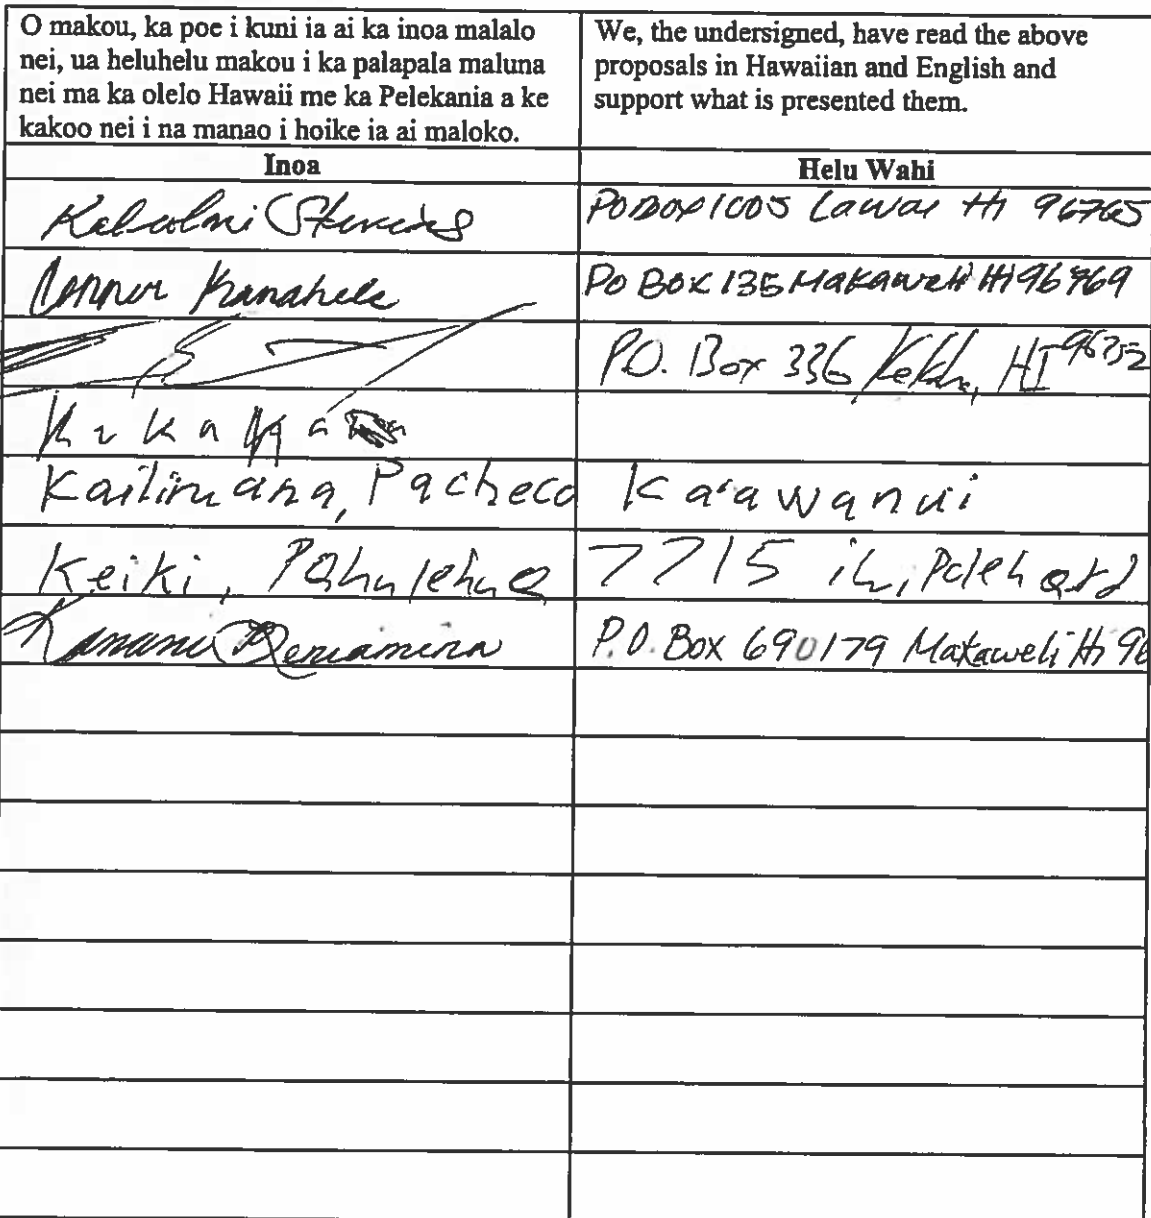 O makou, ka poe i kuni ia ai ka inoa malalo
nei, ua heluhelu makou i ka palapala maluna
nei ma ka olelo Hawaii me ka Pelekania a ke
kakoo nei i na manao i hoike ia ai maloko.
We, the undersigned, have read the above
proposals in Hawaiian and English and
support what is presented them.
Inoa
Helu Wahi
Stevens
PO BOX 1005 Lawai HI 96765
Kanahele
PO BOX 135 Makaweli HI 96769
P.O. Box 336, HI 96752
Pacheco
Ka'awanui
Keiki,
7715
Kanani Beniamina
P.O. Box 690179 Makaweli HI 96